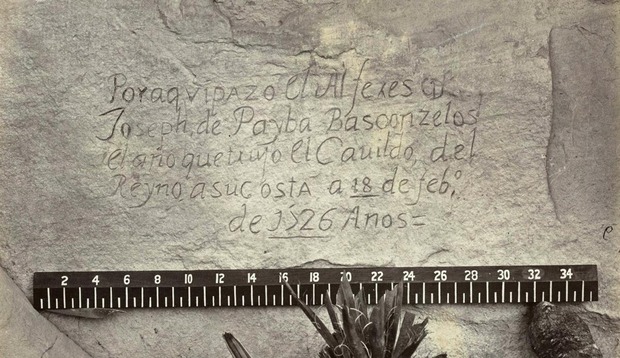 Por aqui pazo el Alferes Dn
Joseph de Payba Basconzelos
el año que trujo el Cauildo del
Reyno a su costa a 18 de feb.o
de 1526 Años=
2 4 6 8 10 12 14 16 18 20 22 24 26 28 30 32 34